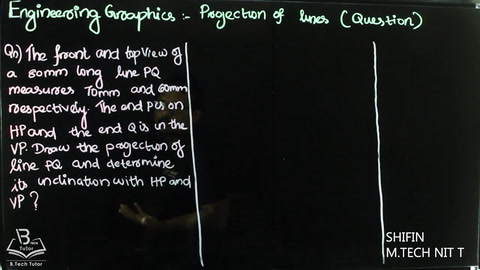 Engineering Graphics :- Projection of lines (Question)
Qn) The front and top view of
a 80mm long line PQ
measures 70mm and 60mm
respectively. The end P is on
HP and the end Q is in the
VP. Draw the projection of
line PQ and determine
its inclination with HP and
VP ?
B Tech
Tutor
B.Tech Tutor
SHIFIN
M.TECH NIT T